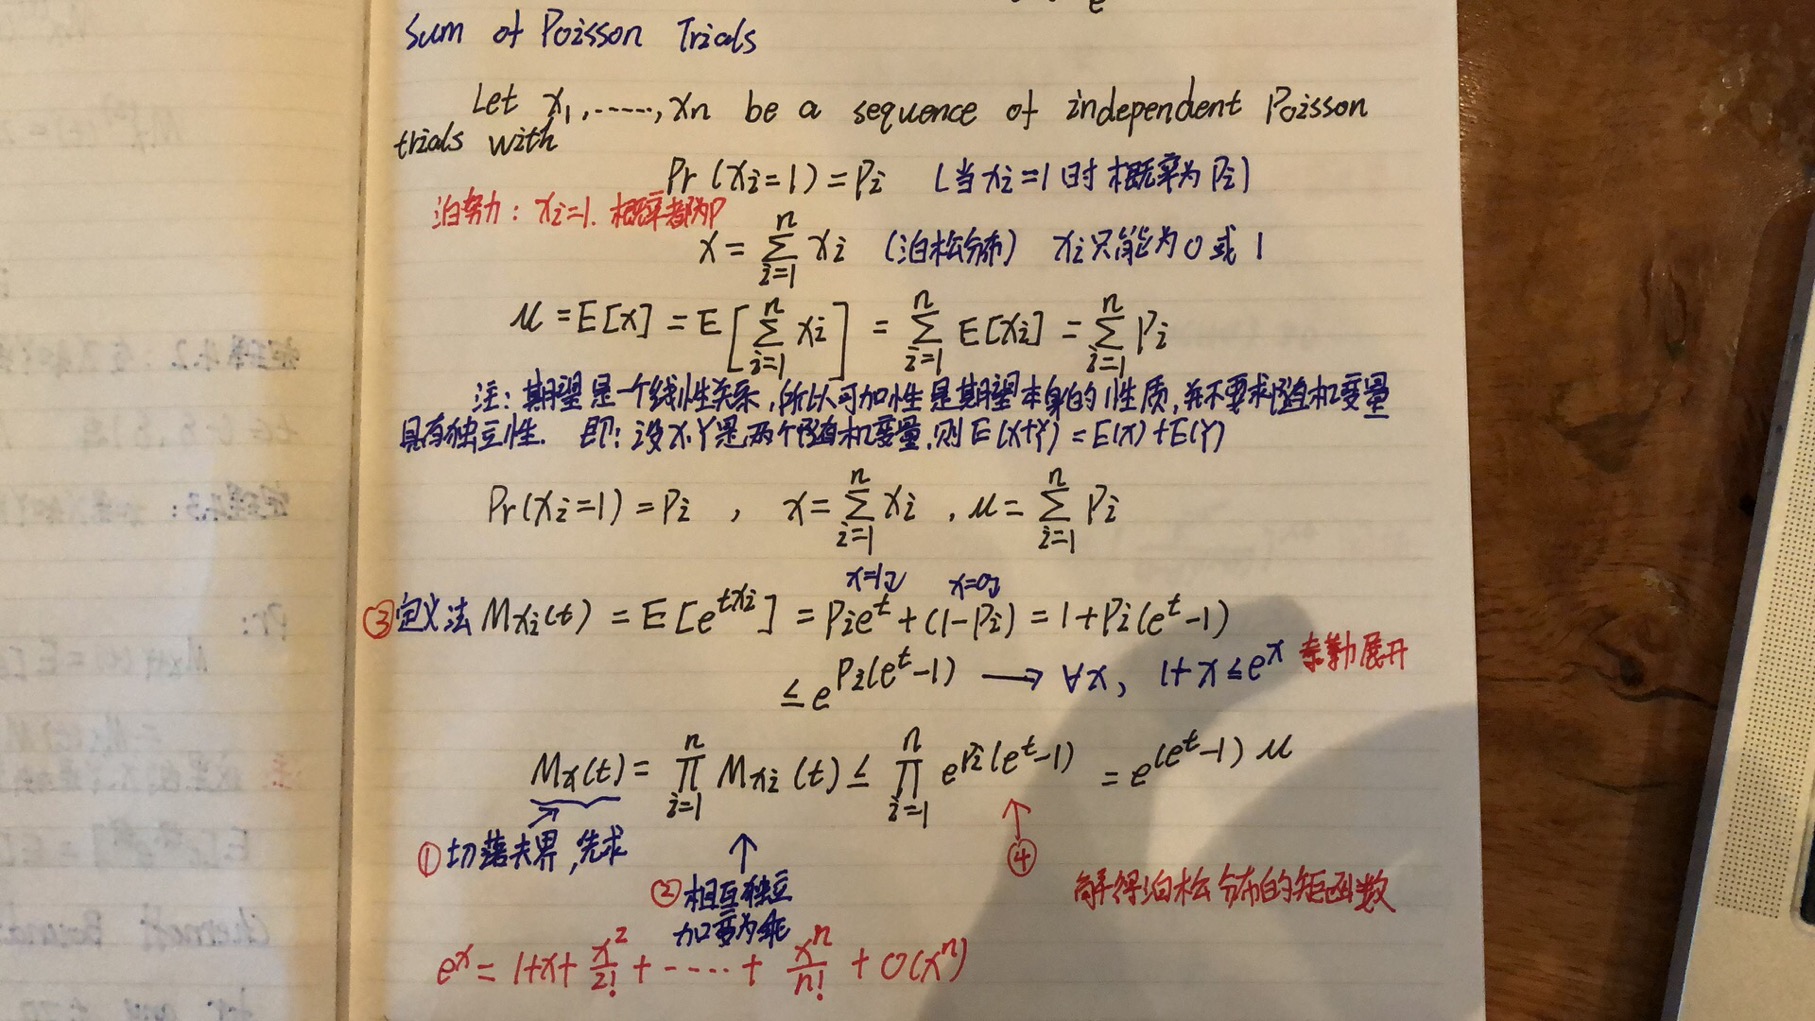 Sum of Poisson Trials
Let x₁, ......, xn be a sequence of independent Poisson
trials with
Pr(xi=1)=Pi (当xi=1时概率为Pi)
泊努力: xi=1. 概率都为P
x=∑_{i=1}^{n} xi (泊松分布) xi只能为0或1
μ=E[x]=E[∑_{i=1}^{n} xi]=∑_{i=1}^{n} E[xi]=∑_{i=1}^{n} Pi
注: 期望是一个线性关系,所以可加性是期望本身的性质,并不要求随机变量
具有独立性. 即: 设X.Y是两个随机变量.则E(X+Y)=E(X)+E(Y)
Pr(xi=1)=Pi , x=∑_{i=1}^{n} xi , μ=∑_{i=1}^{n} Pi
x=1时 x=0时
③定义法 Mxi(t)=E[e^{txi}]=Pie^t+(1-Pi)=1+Pi(e^t-1)
≤e^{Pi(e^t-1)} → ∀x, 1+x≤e^x 泰勒展开
Mx(t)=∏_{i=1}^{n} Mxi(t)≤∏_{i=1}^{n} e^{Pi(e^t-1)}=e^{(e^t-1)μ}
①切诺夫界,先求
②相互独立
加变为乘
④
解得泊松分布的矩函数
e^x=1+x+x²/2!+-----+x^n/n!+O(x^n)